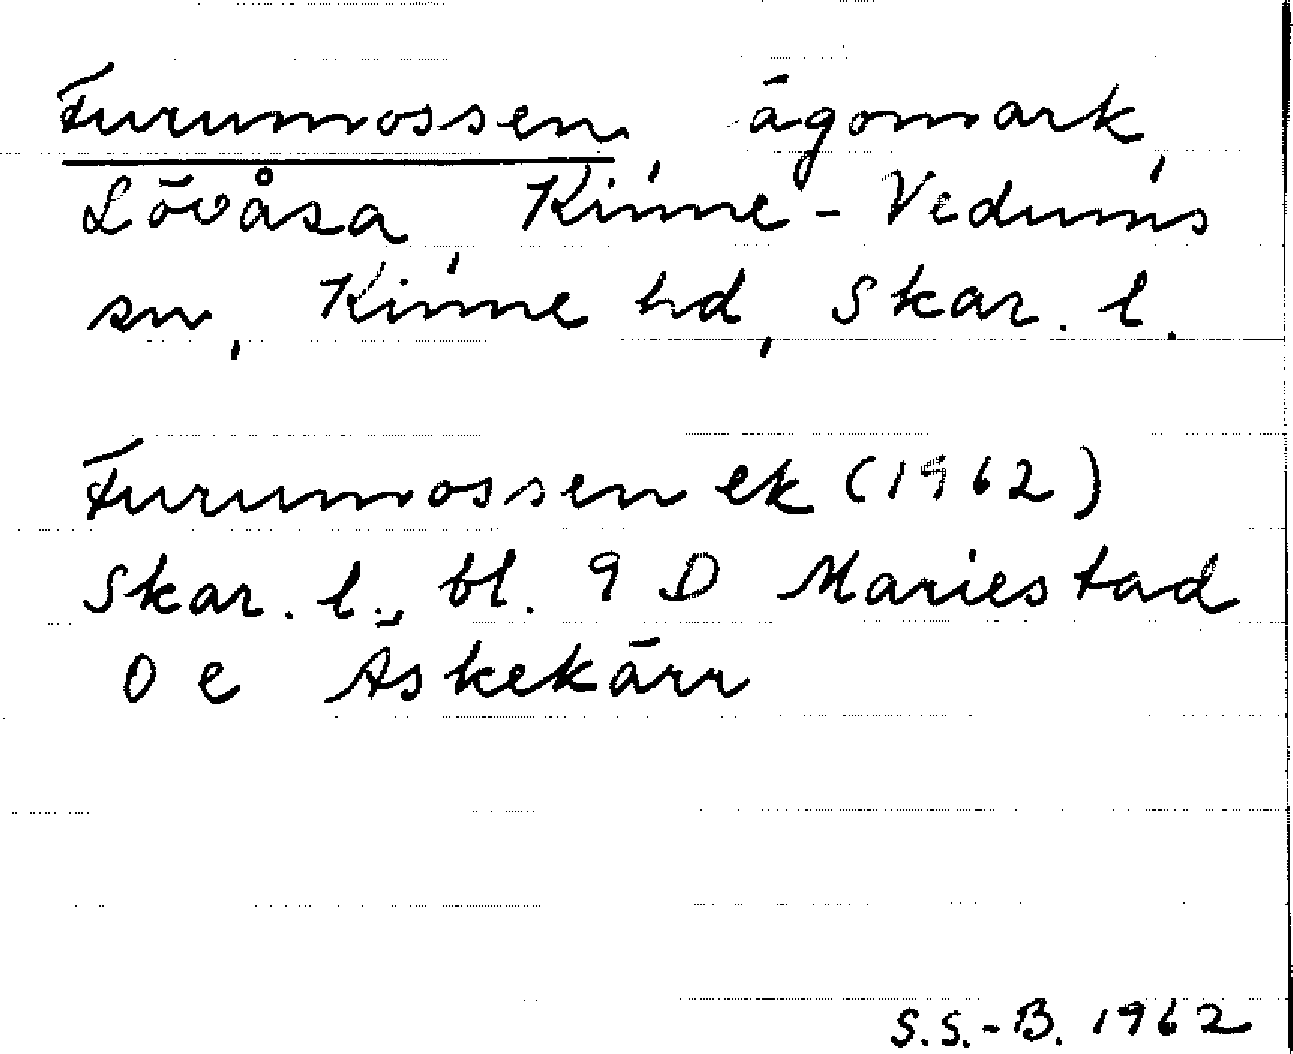 Furumossen, ägomark,
Lövåsa, Kinne-Vedums
sn, Kinne hd, Skar. l.
Furumossen ek (1962)
Skar. l., bl. 9 D Mariestad
0 e Äskekärr
S.S.-B. 1962